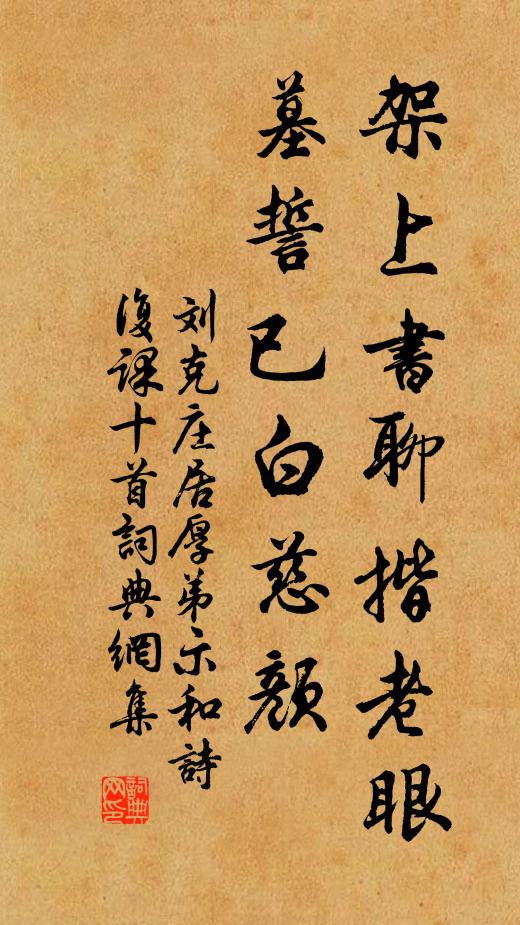 架上書聊揩老眼
墓誓已白慈顏
刘克庄居厚弟示和詩
復課十首詞典網集
詞典网印